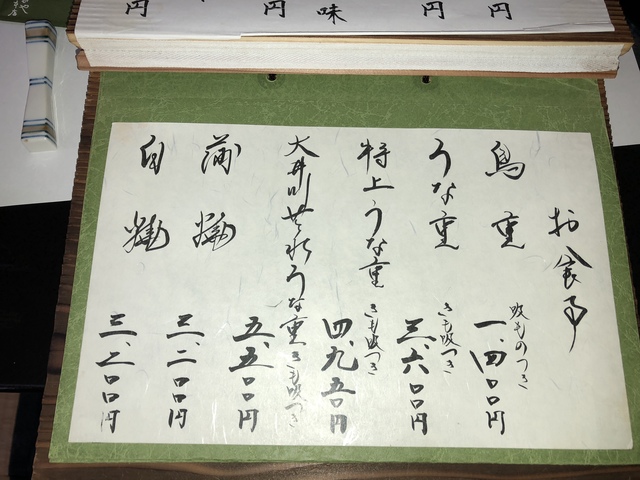 お食事
鳥重 吸ものつき 一、四〇〇円
うな重 きも吸つき 三、六〇〇円
特上うな重 きも吸つき 四、九五〇円
大井川共水うな重 きも吸つき 五、五〇〇円
蒲焼 三、二〇〇円
白焼 三、二〇〇円
円
円
味
円
円